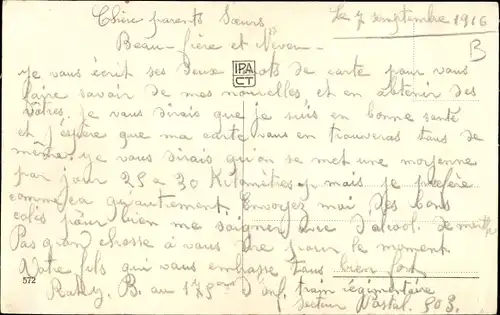 Chère parents Sœurs Le 7 semptembre 1916
Beau-frère et Neveu
B
IPA
CT
Je vous écrit ses deux mots de carte pour vous
faire savoir de mes nouvelles et en obtenir des
vôtres. je vous dirais que je suis en bonne santé
et j'éspère que ma carte vous en trouveras tous de
même. je vous dirais qu'on se met une moyenne
par jour 25 a 30 Kilomètres, mais je préfère
comme ça qu'autrement Envoyez moi des bons
colis pour bien me soigner avec d'alcool de menthe
Pas gran chosse à vous dire pour le moment
Votre fils qui vous embrasse tous bien fort
B. au d'inf. train régimentaire
572 Secteur Postal. 503.